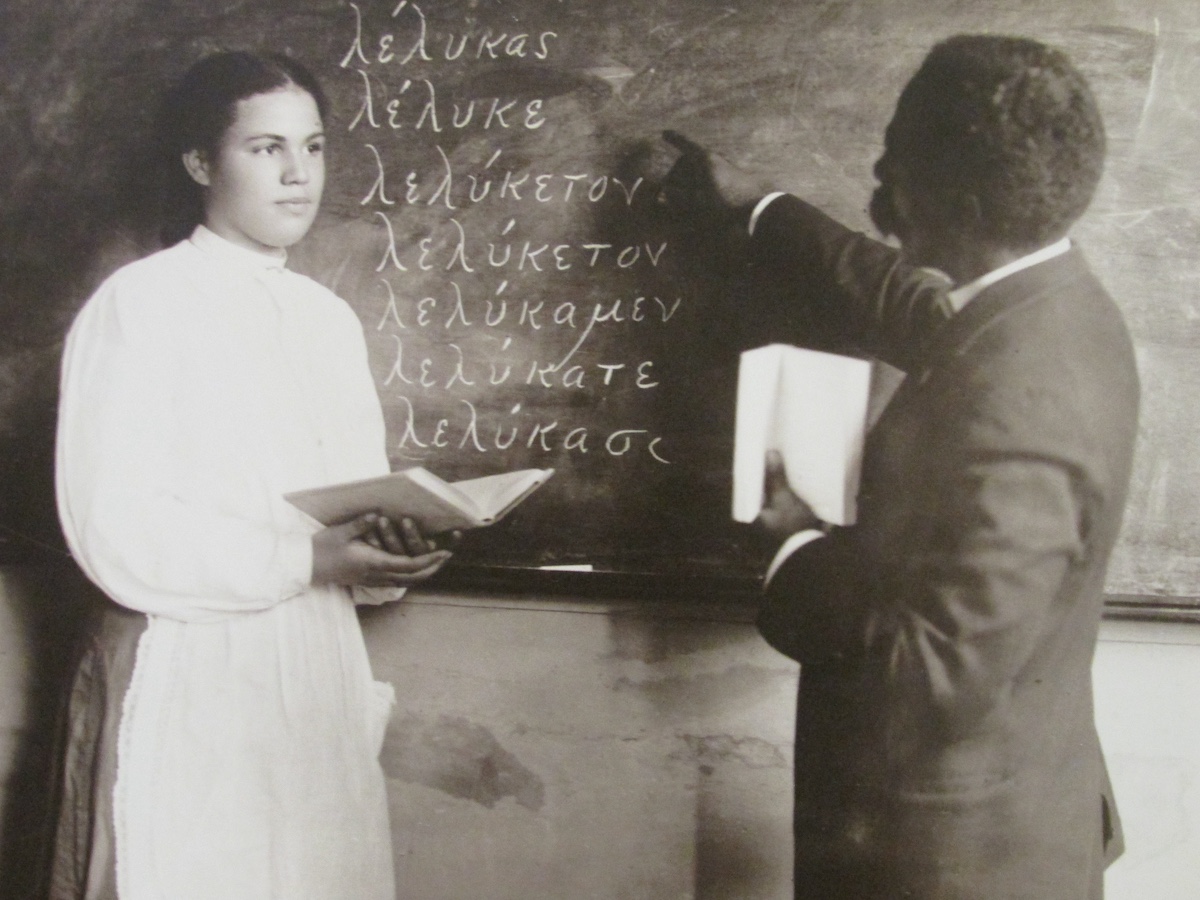 λέλυκας
λέλυκε
λελύκετον
λελύκετον
λελύκαμεν
λελύκατε
λελύκασι